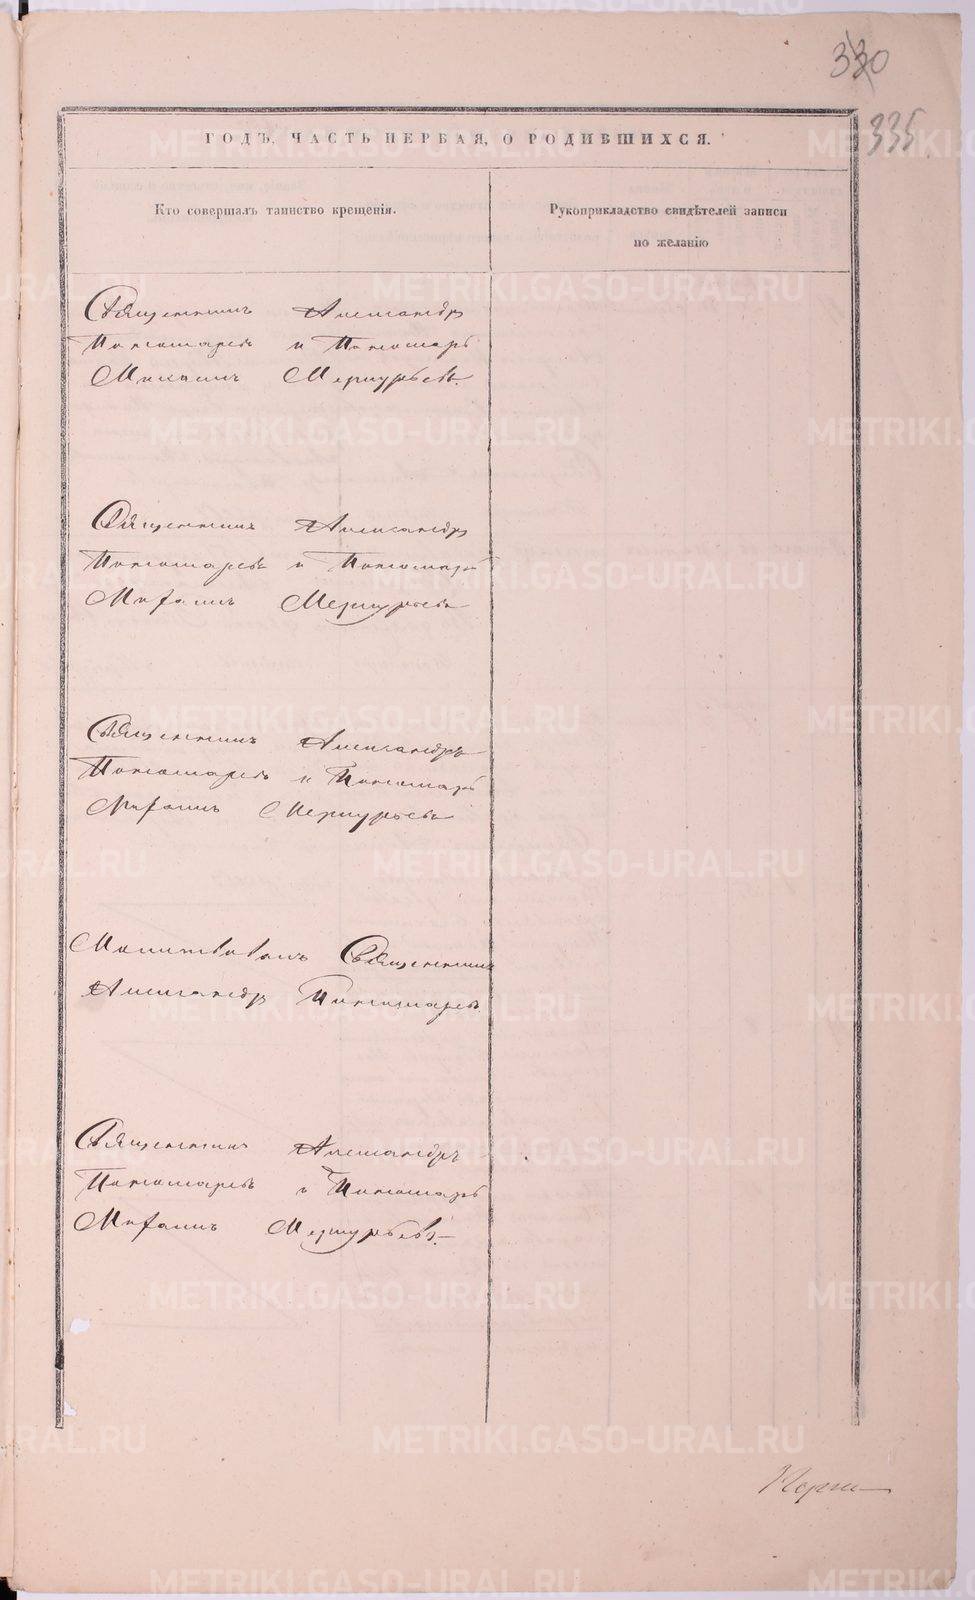 330
335
ГОДЪ, ЧАСТЬ ПЕРВАЯ, О РОДИВШИХСЯ.
Кто совершалъ таинство крещенія.
Рукоприкладство свидѣтелей записи
по желанію
Священникъ Александръ
Пономаревъ и Пономарь
Меркурьевъ.
Священникъ Александръ
Пономаревъ и Пономарь
Меркурьевъ
Священникъ Александръ
Пономаревъ и Пономарь
Меркурьевъ
Молитвовалъ Священникъ
Александръ Пономаревъ
Священникъ Александръ
Пономаревъ и Пономарь
Меркурьевъ.
METRIKI.GASO-URAL.RU